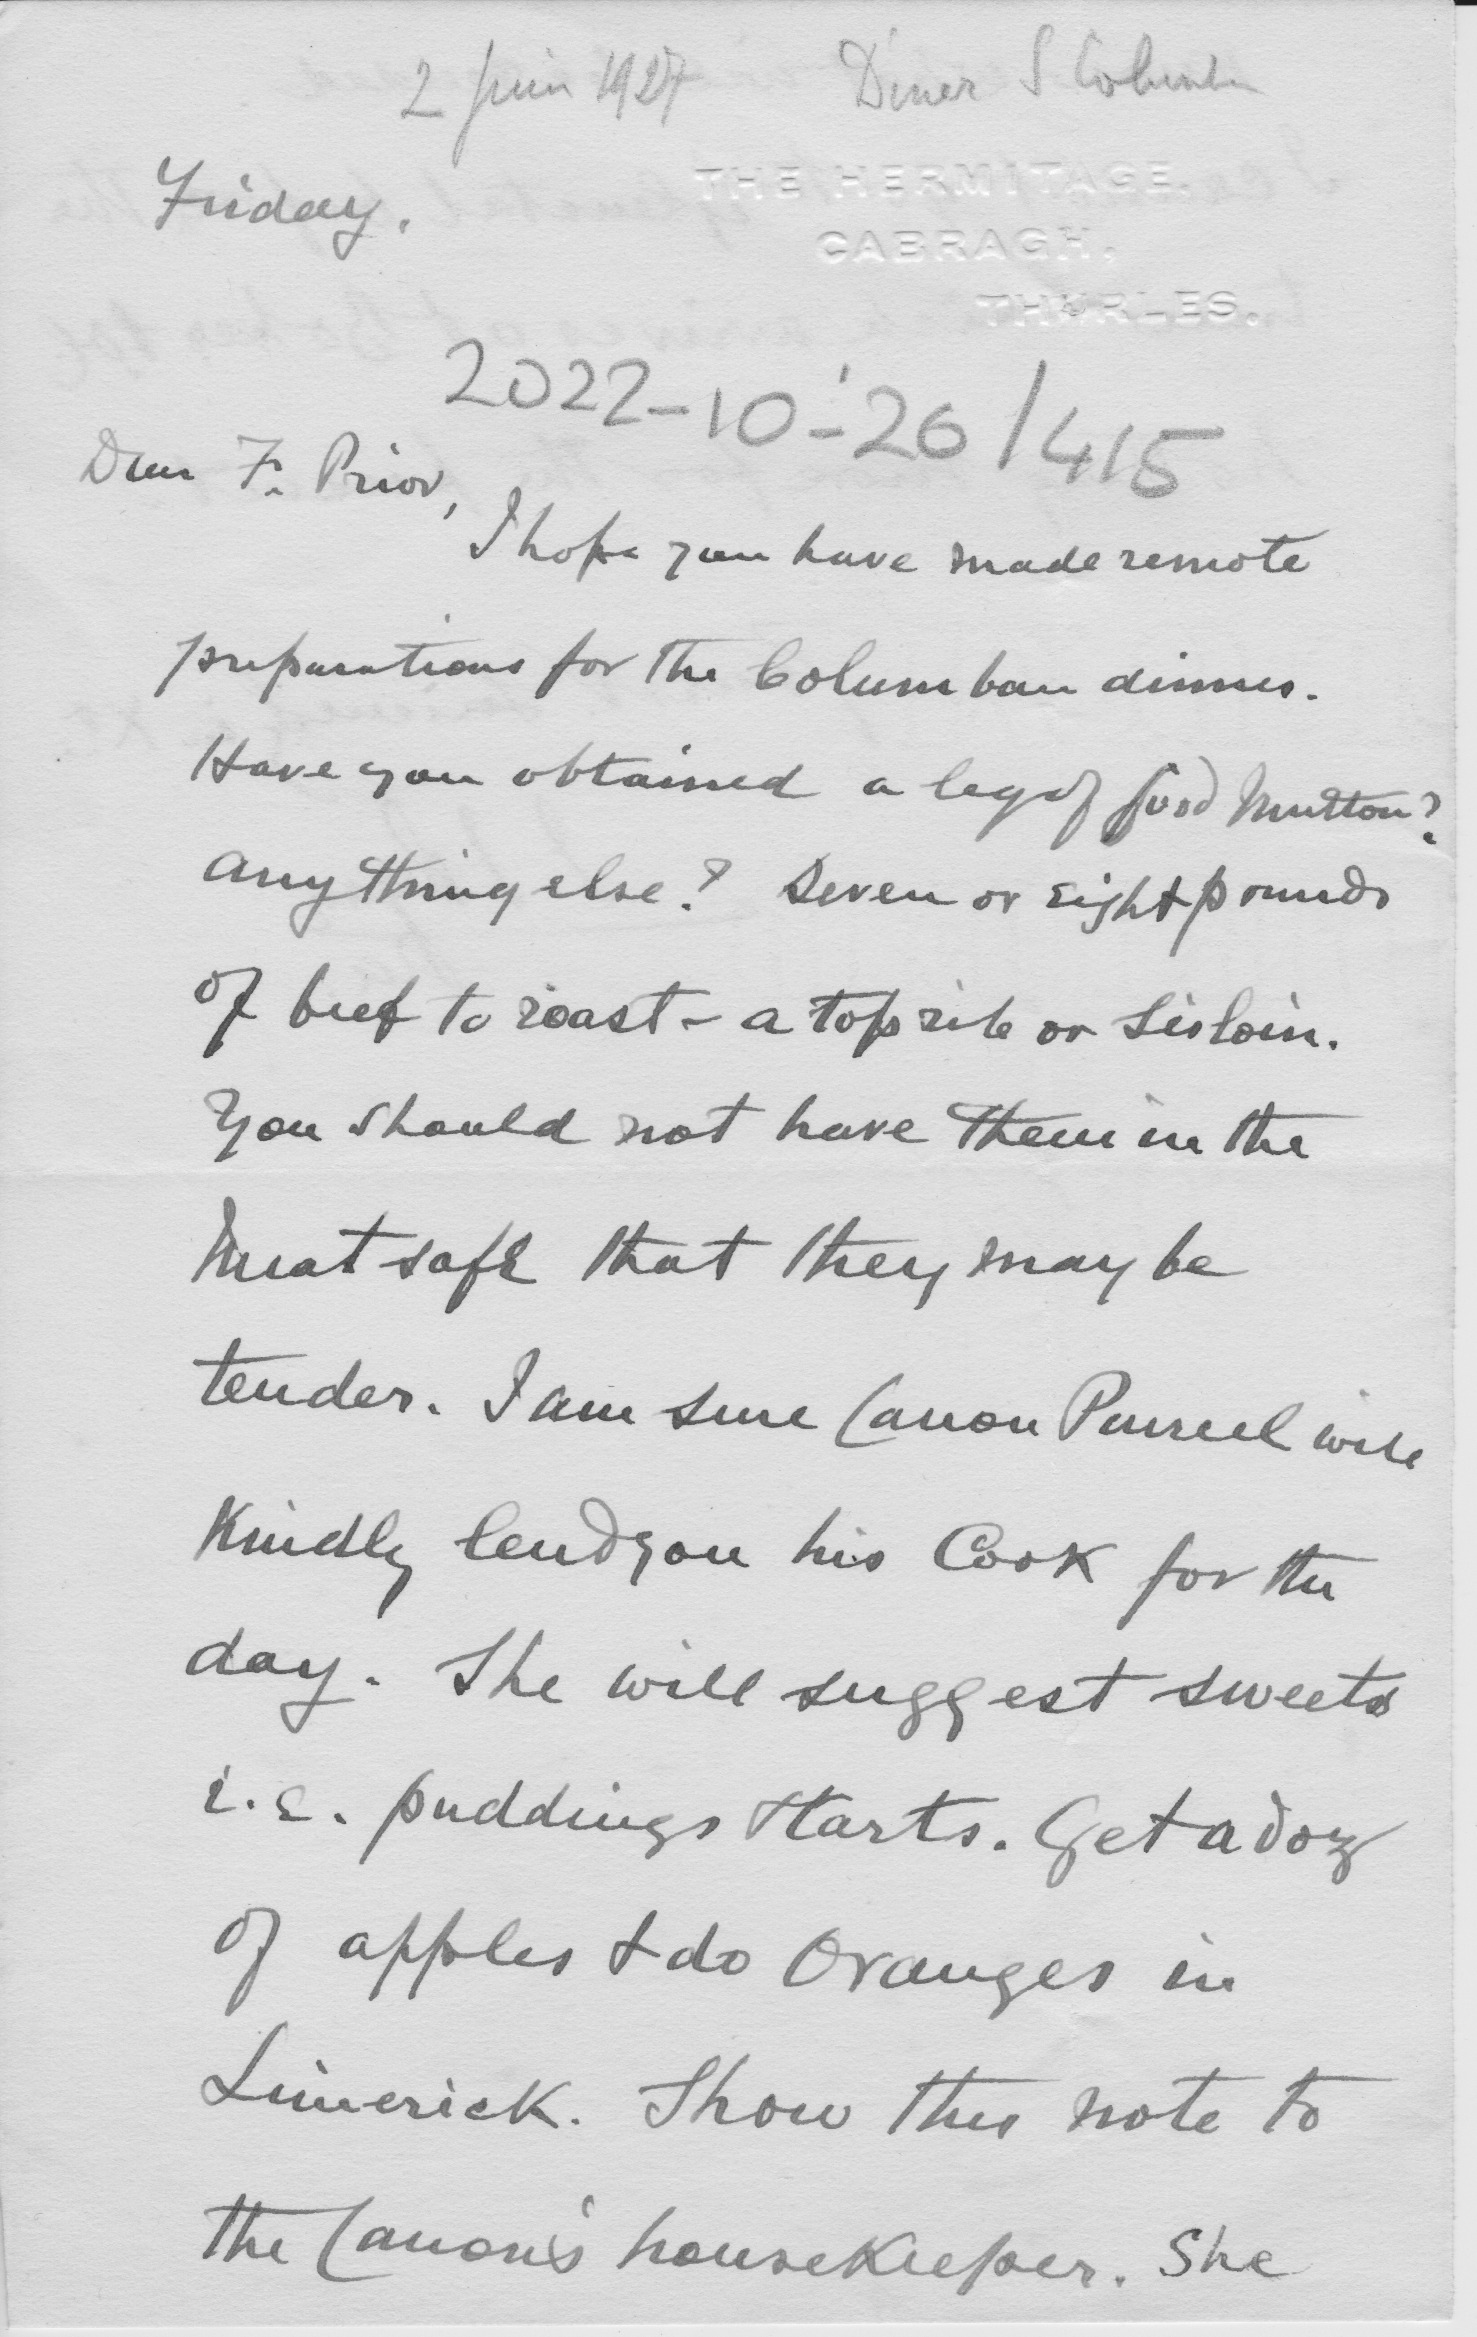 2 Juin 1927 Diner S Columba
THE HERMITAGE,
Friday.
CABRAGH,
THURLES.
2022-10-26/415
Dear F. Prior,
I hope you have made remote
preparations for the Columban dinner.
Have you obtained a leg of good mutton?
Anything else? Seven or eight pounds
of beef to roast - a top rib or sirloin.
You should not have them in the
meat safe that they may be
tender. I am sure Canon Purcell will
kindly lend you his Cook for the
day. She will suggest sweets
i.e. puddings & tarts. Get a doz
of apples & do oranges in
Limerick. Show this note to
the Canon's housekeeper. She